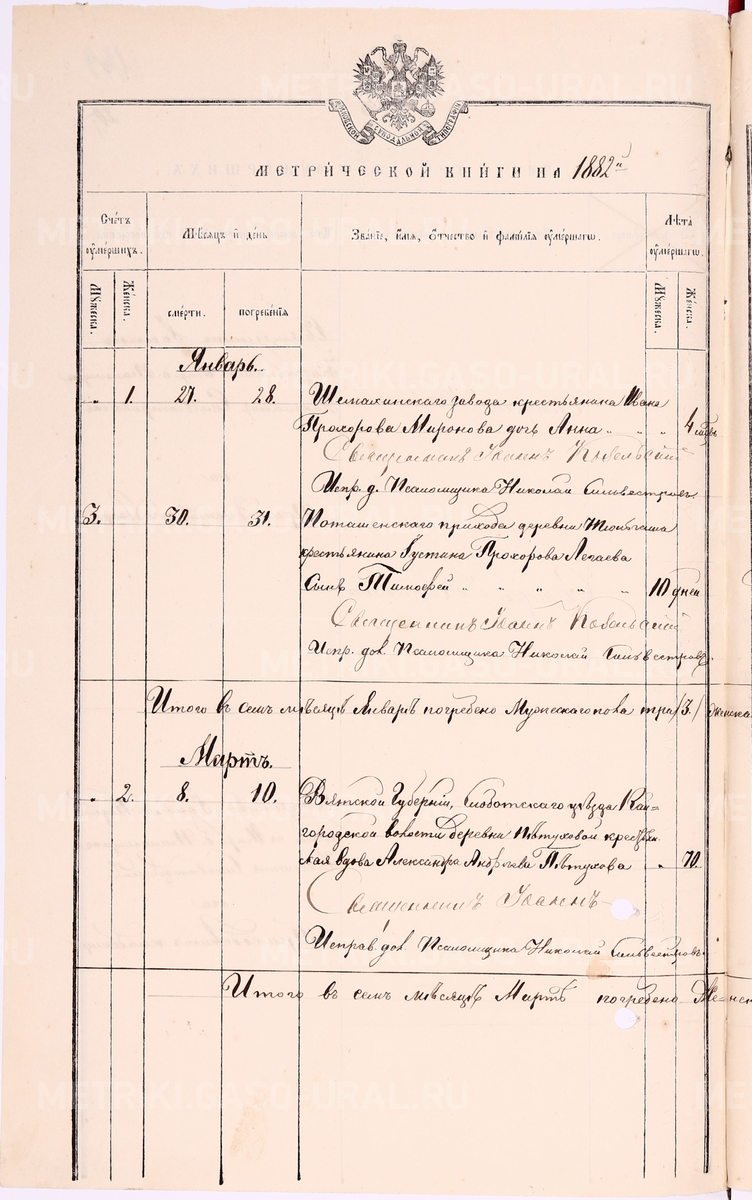 МЕТРИ́ЧЕСКОЙ КНИ́ГИ НА 1882 й
Сче́тъ ѹме́ршихъ.
Мѣ́сяцъ и҆ де́нь
Зва́нїе, и҆́мя, ѻ҆́тчество и҆ фамѝлїя ѹме́ршагѡ.
Лѣ́та ѹме́ршагѡ.
Мꙋ́жеска.
Же́нска.
сме́рти.
погребе́нїя
Мꙋ́жеска.
Же́нска.
Январь.
„ 1. 27. 28. Шемахинскаго завода крестьянина Ивана
Прохорова Миронова дочь Анна „ „ „ 4
Священникъ Іоаннъ
Испр. д. Псаломщика Николай Сильвестровъ
3. 30. 31. Поташенскаго прихода деревни
крестьянина Густина Прохорова Легаева
Сынъ Тимофей „ „ „ „ „ 10 дней
Священникъ Іоаннъ
Испр. дол. Псаломщика Николай Сильвестровъ.
Итого въ семъ мѣсяцѣ Январѣ погребено Мужескаго пола три /3./ женска
Мартъ.
„ 2. 8. 10. Вятской Губерніи, Слободскаго уѣзда Кай-
городской волости деревни Пѣтуховой крестьян
ская вдова Александра Андреева Пѣтухова „ 70.
Священникъ Іоаннъ
Исправ. дол Псаломщика Николай Сильвестровъ.
Итого въ семъ мѣсяцѣ Мартѣ погребено Же-нск
METRIKI.GASO-URAL.RU